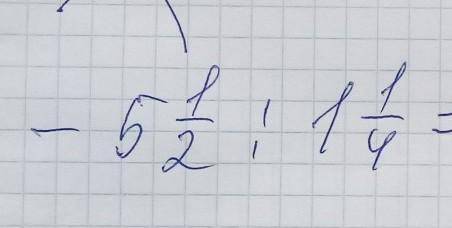 - 5 1/2 : 1 1/4 =